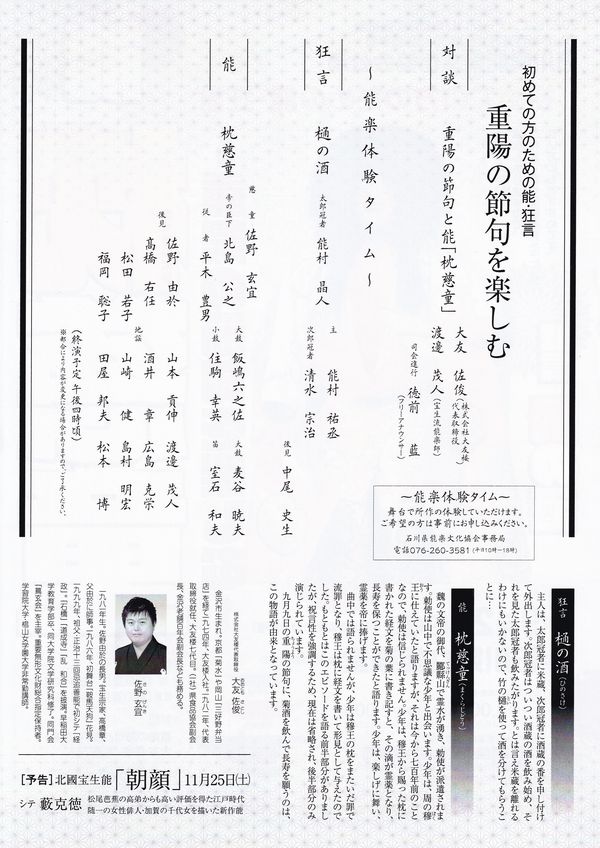 初めての方のための能・狂言
重陽の節句を楽しむ
対談
重陽の節句と能「枕慈童」
大友 佐俊（株式会社大友楼 代表取締役）
渡邊 茂人（宝生流能楽師）
司会進行 徳前 藍（フリーアナウンサー）
～能楽体験タイム～
狂言
樋の酒
太郎冠者 能村 晶人
主 能村 祐丞
次郎冠者 清水 宗治
後見 中尾 史生
能
枕慈童
慈童 佐野 玄宜
帝の臣下 北島 公之
従者 平木 豊男
大鼓 飯嶋六之佐
小鼓 住駒 幸英
太鼓 麦谷 暁夫
笛 室石 和夫
後見
佐野 由於
高橋 右任
松田 若子
福岡 聡子
地謡
山本 貢伸
酒井 章
山崎 健
田屋 邦夫
渡邊 茂人
広島 克栄
島村 明宏
松本 博
（終演予定 午後四時頃）
※都合により内容が変更になる場合がありますので、ご了承ください。
～能楽体験タイム～
舞台で所作の体験していただけます。
ご希望の方は事前にお申し込みください。
石川県能楽文化協会事務局
電話076-260-3581（平日10時～18時）
狂言 樋の酒（ひのさけ）
主人は、太郎冠者に米蔵、次郎冠者に酒蔵の番を申し付け
て外出します。次郎冠者はついつい酒蔵の酒を飲み始め、そ
れを見た太郎冠者も飲みたがります。とは言え米蔵を離れる
わけにもいかないので、竹の樋を使って酒を分けてもらうこ
とに…
能 枕慈童（まくらじどう）
魏の文帝の御代、酈縣山で霊水が湧き、勅使が派遣されま
す。勅使は山中で不思議な少年と出会います。少年は、周の穆
王に仕えていたと語りますが、それは今から七百年前のこと
なので、勅使は信じられません。少年は、穆王から賜った枕に
書かれた経文を菊の葉に書き記すと、その滴が霊薬となり、
長寿を保つことができたと語ります。少年は、楽しげに舞い、
霊薬を帝に捧げます。
曲中では語られませんが、少年は穆王の枕をまたいだ罪で
流罪となり、穆王は枕に経文を書いて形見として与えたので
した。もともとはこのエピソードを語る前半部分がありまし
たが、祝言性を強調するため、現在は省略され、後半部分のみ
演じられています。
九月九日の重陽の節句に、菊酒を飲んで長寿を願うのは、
この物語が由来となっています。
株式会社大友楼代表取締役 大友 佐俊
金沢市生まれ。京都「菊水」や岡山「三好野弁当
店」を経て一九七四年、大友楼入社。一九八一年、代表
取締役就任、大友楼七代目。（公社）県食品協会副会
長、金沢老舗百年会副会長なども務める。
佐野 玄宜
一九八一年生。佐野由於の長男。宝生宗家、高橋章、
父由於に師事。一九八六年、初舞台「鞍馬天狗」花見。
一九九九年、祖父正治十三回忌追善能で初シテ「経
政」。「石橋」「道成寺」「乱 和合」を披演。早稲田大
学教育学部卒、同大学院文学研究科修了。同門会
「薫玄会」を主宰。重要無形文化財総合指定保持者。
学習院大学・椙山女学園大学非常勤講師。
【予告】北國宝生能「朝顔」11月25日（土）
シテ 藪克徳
松尾芭蕉の高弟からも高い評価を得た江戸時代
随一の女性俳人・加賀の千代女を描いた新作能